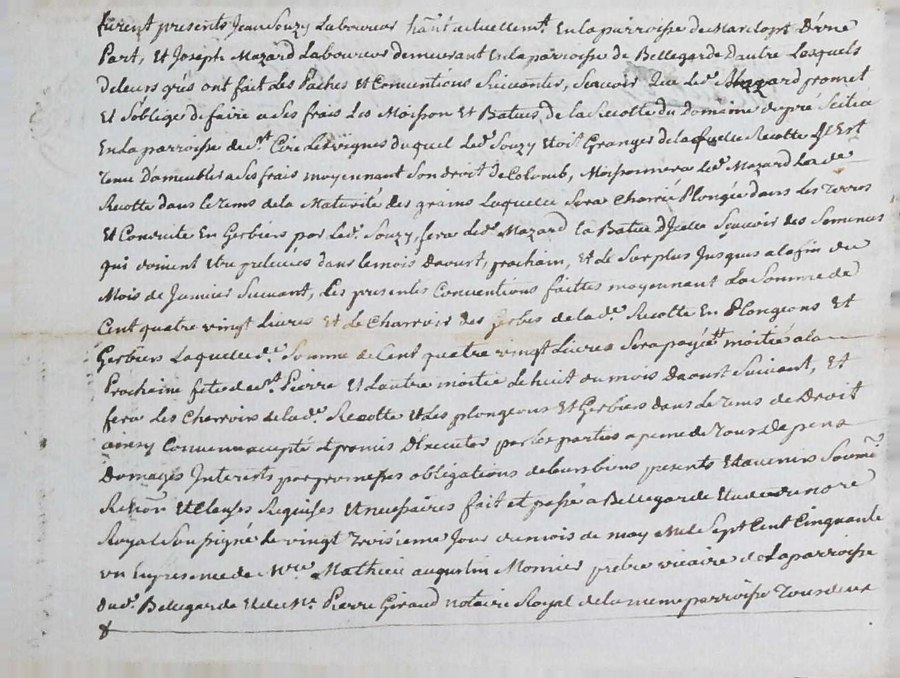 furent presents Jean Souzy Laboureur hãnt actuellemt. En la parroisse de Marclopt D'une
Part, Et Joseph Mazard Laboureur demeurant En la parroisse de Bellegarde D'autre Lesquels
de leurs grés ont fait Les Paches Et Conventions Suivantes, Scavoir Que Led. Mazard promet
Et S'oblige de faire a Ses frais Les Moisson Et Batues de la Recolte du Domaine du pré Scitué
En la parroisse de St. Cire Les Vignes duquel Led. Souzy Etoit Granger de laquelle Recolte Il Est
tenu D'ameubler a Ses frais moyennant Son droit De Colomb, Moissonnera Led. Mazard La de.
Recolte dans le tems de la Maturité des grains Laquelle Sera Charriée Plongée dans Les Terres
Et Conduite En Gerbiers par Led. Souzy, fera Led. Mazard la Batue D'Icelle Scavoir des Semences
qui doivent Etre prelevées dans le mois Daoust, prochain, Et Le Surplus Jusques a la fin du
Mois de Janvier Suivant, Les presentes Conventions faittes moyennant La Somme de
Cent quatre vingt Livres Et Le Charroir des Gerbes de la de. Recolte En Plongeons Et
Gerbiers Laquelle de. Somme de Cent quatre vingt Livres Sera payée moitiée a la
Prochaine fete de St. Pierre Et L'autre moitié Le huit du mois Daoust Suivant, Et
fera Les Charroirs de la de. Recolte Et Les plongeons Et Gerbiers dans Le tems de Droit
ainsy Convenu accepté Et promis D'Executer par les parties a peine de Tous Depens
Domages Interests par promesses obligations de leurs biens presents Et avenirs Soumõn
Renõn Et Clauses Requises Et necessaires fait et passé a Bellegarde Etude du nore
Royal Soussigné Le vingt Troisieme Jour du mois de may Mil Sept Cent Cinquante
un En presence de Mre. Mathieu augustin Monnier prêtre vicaire de La parroisse
dud. Bellegarde Et de Me. Pierre Giraud notaire Royal de la meme parroisse Tous deux